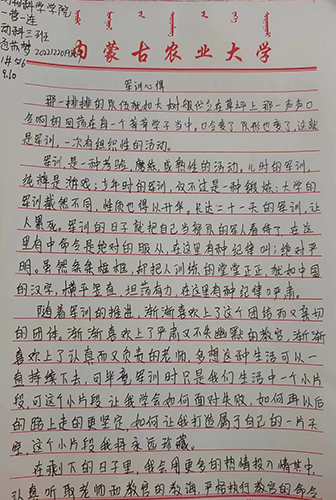 动物科学学院
一营一连
动科三班
内蒙古农业大学
9.10
军训心得
那一排排的队伍就如大树般伫立在草坪上,那一声声口
令响的回荡在每一个莘莘学子当中,口令变了队形也变了,这就
是军训,一次有组织性的活动。
军训是一种考验,磨练,成熟性的活动。儿时的军训,
纯粹是游戏;少年时的军训,仅不过是一种锻炼;大学的
军训截然不同,性质也得从升华。长达二十一天的军训,让
人累死。军训的日子就把自己当预队的军人看待了,在这
里有中命令是绝对的服从,在这里有种纪律叫:绝对严
明。虽然条条框框,却把人训练的堂堂正正,犹如中国
的汉字,横平竖直,坦荡有力,在这里有种纪律叫严肃。
随着军训的推进,渐渐喜欢上了这个团结而又亲切
的团体。渐渐喜欢上了严肃又不失幽默的教官,渐渐
喜欢上了认真而又负责的老师,多想这种生活可以一
直持续下去,可毕竟军训时只是我们生活中一个小片
段,可这个小片段让我学会如何面对失败,如何再以后
的路上走的更坚定,如何让我打造属于自己的一片天
空,这个小片段我将永远珍藏。
在剩下的日子里,我会用更多的热情投入情其中,
认真听取老师和教官的教诲,严格执行教官的命令